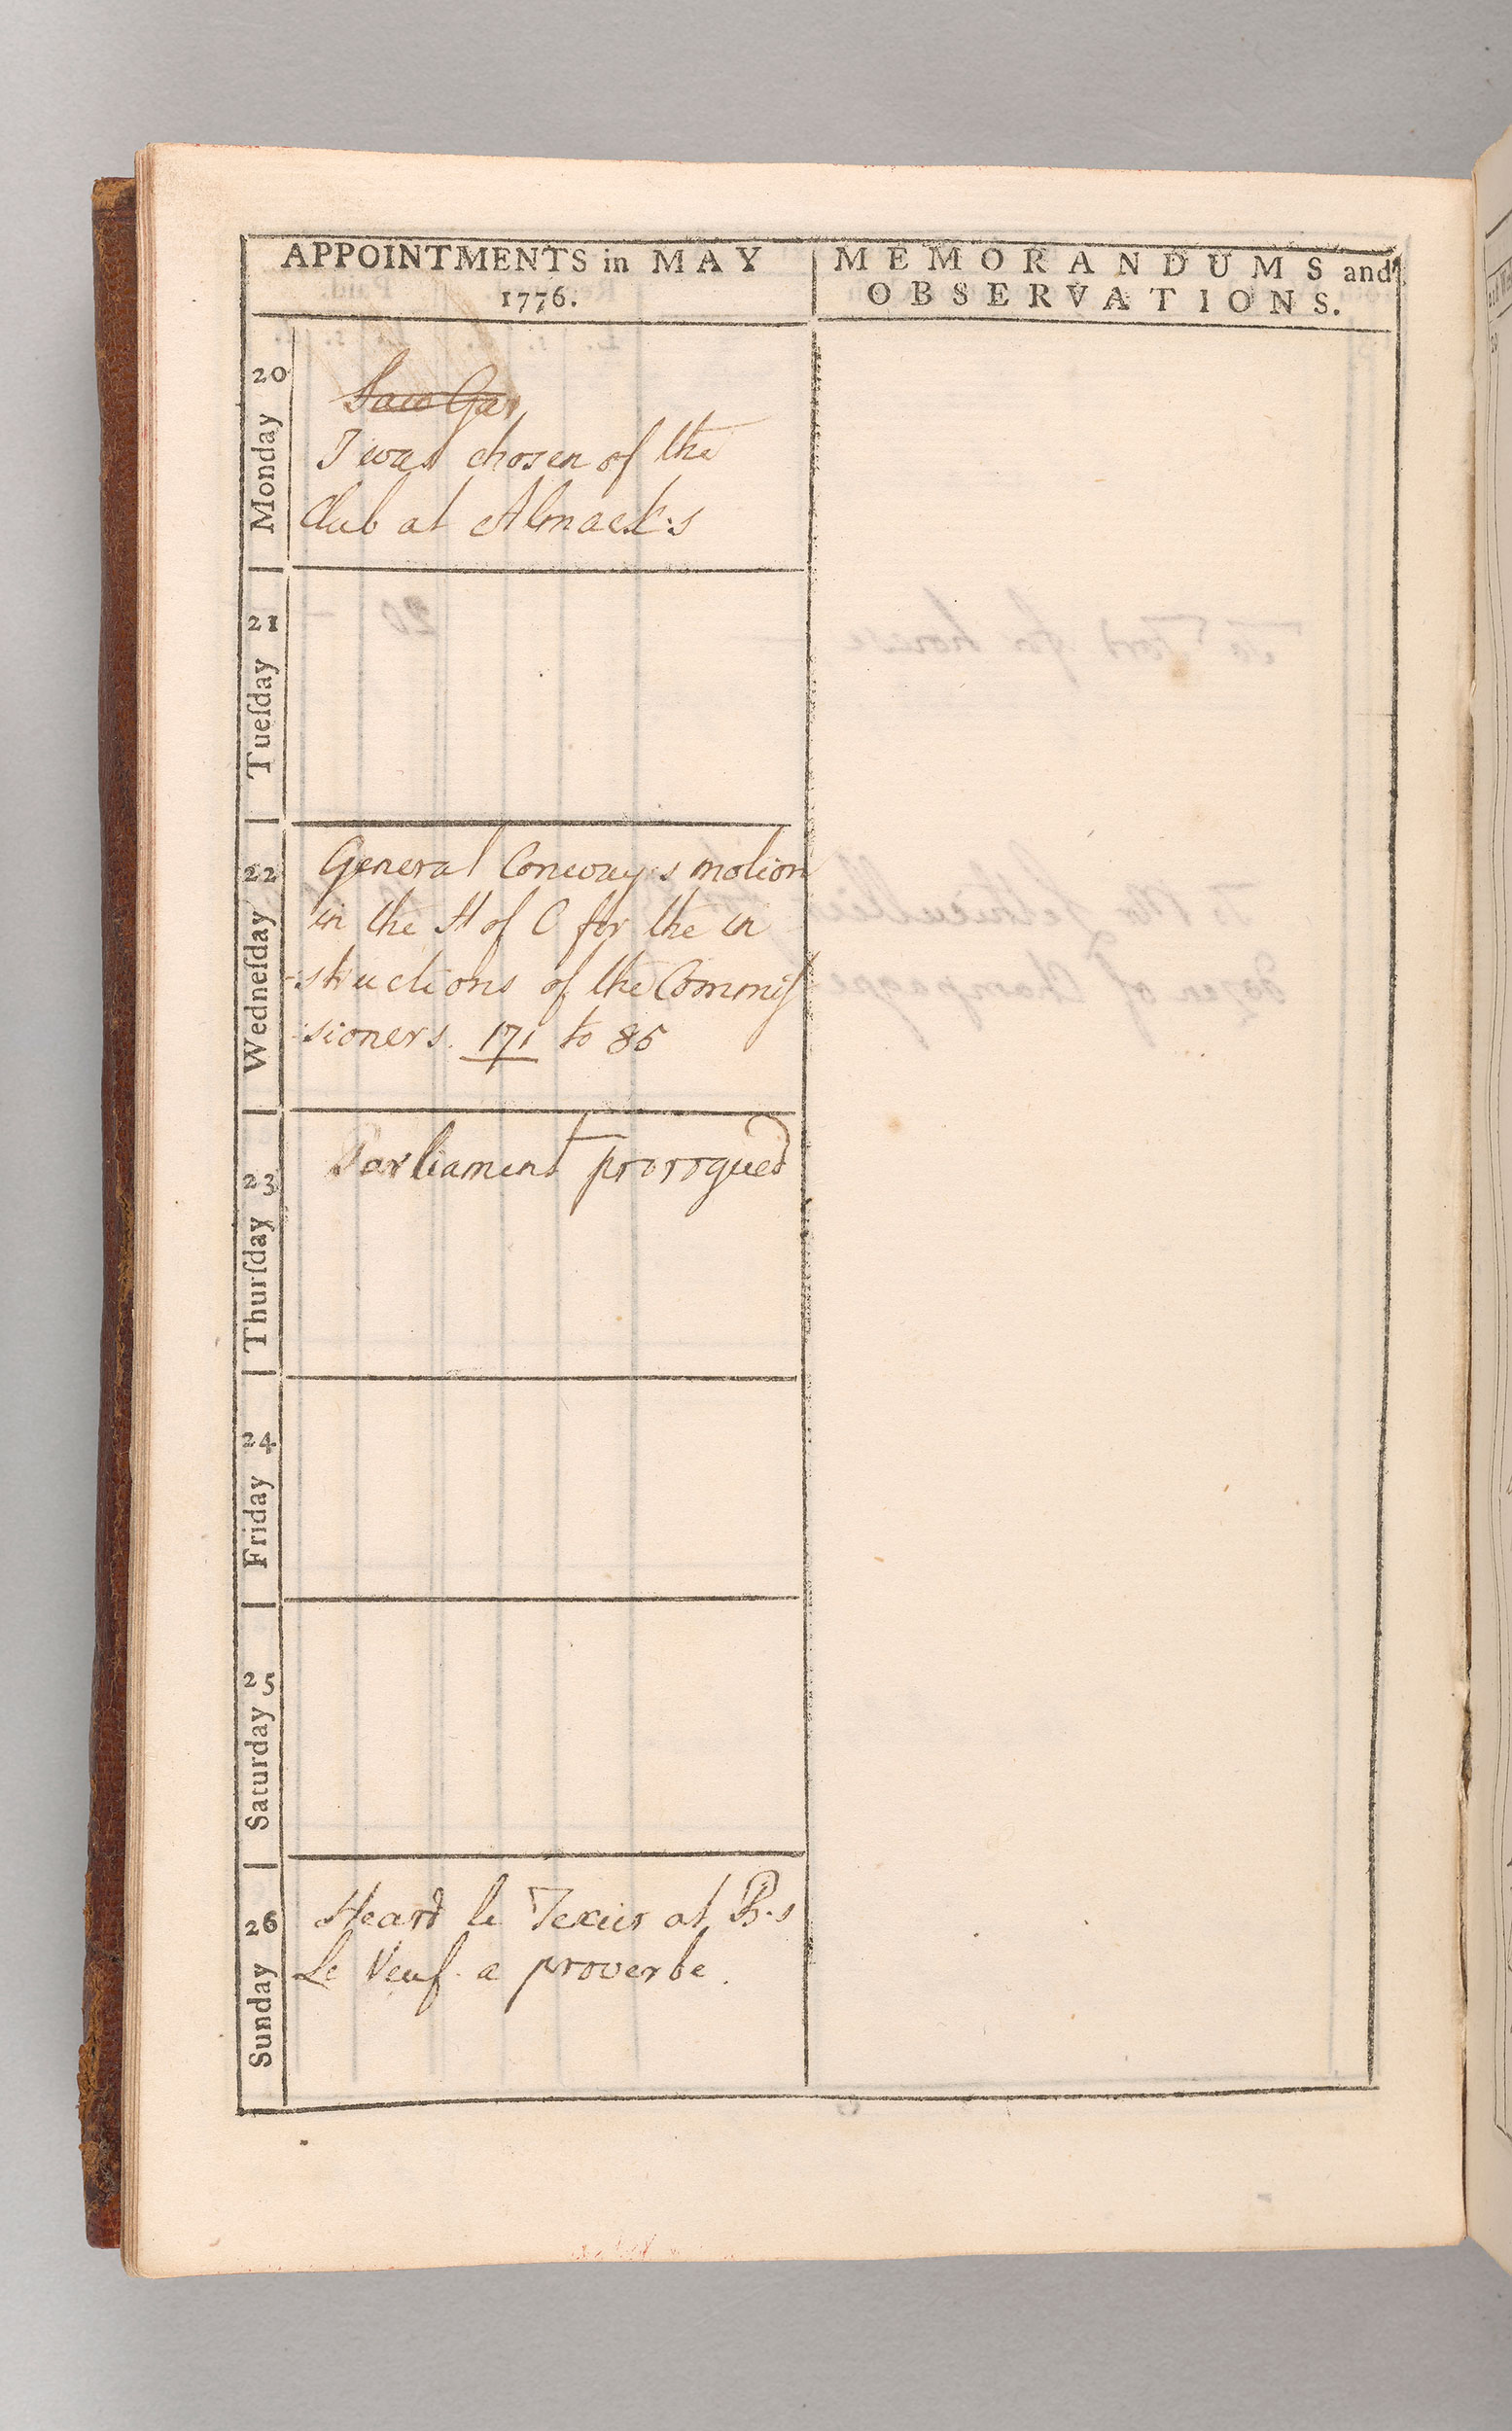 APPOINTMENTS in MAY
1776.
MEMORANDUMS and
OBSERVATIONS.
20 Monday
Saw Gar
I was chosen of the
Club at Almack's
21 Tueſday
22 Wedneſday
General Conway's motion
in the H of C for the in
-structions of the Commiſ
:sioners. 171 to 85
23 Thurſday
Parliament prorogued
24 Friday
25 Saturday
26 Sunday
Heard le Texier at B.s
Le Veuf a proverbe.